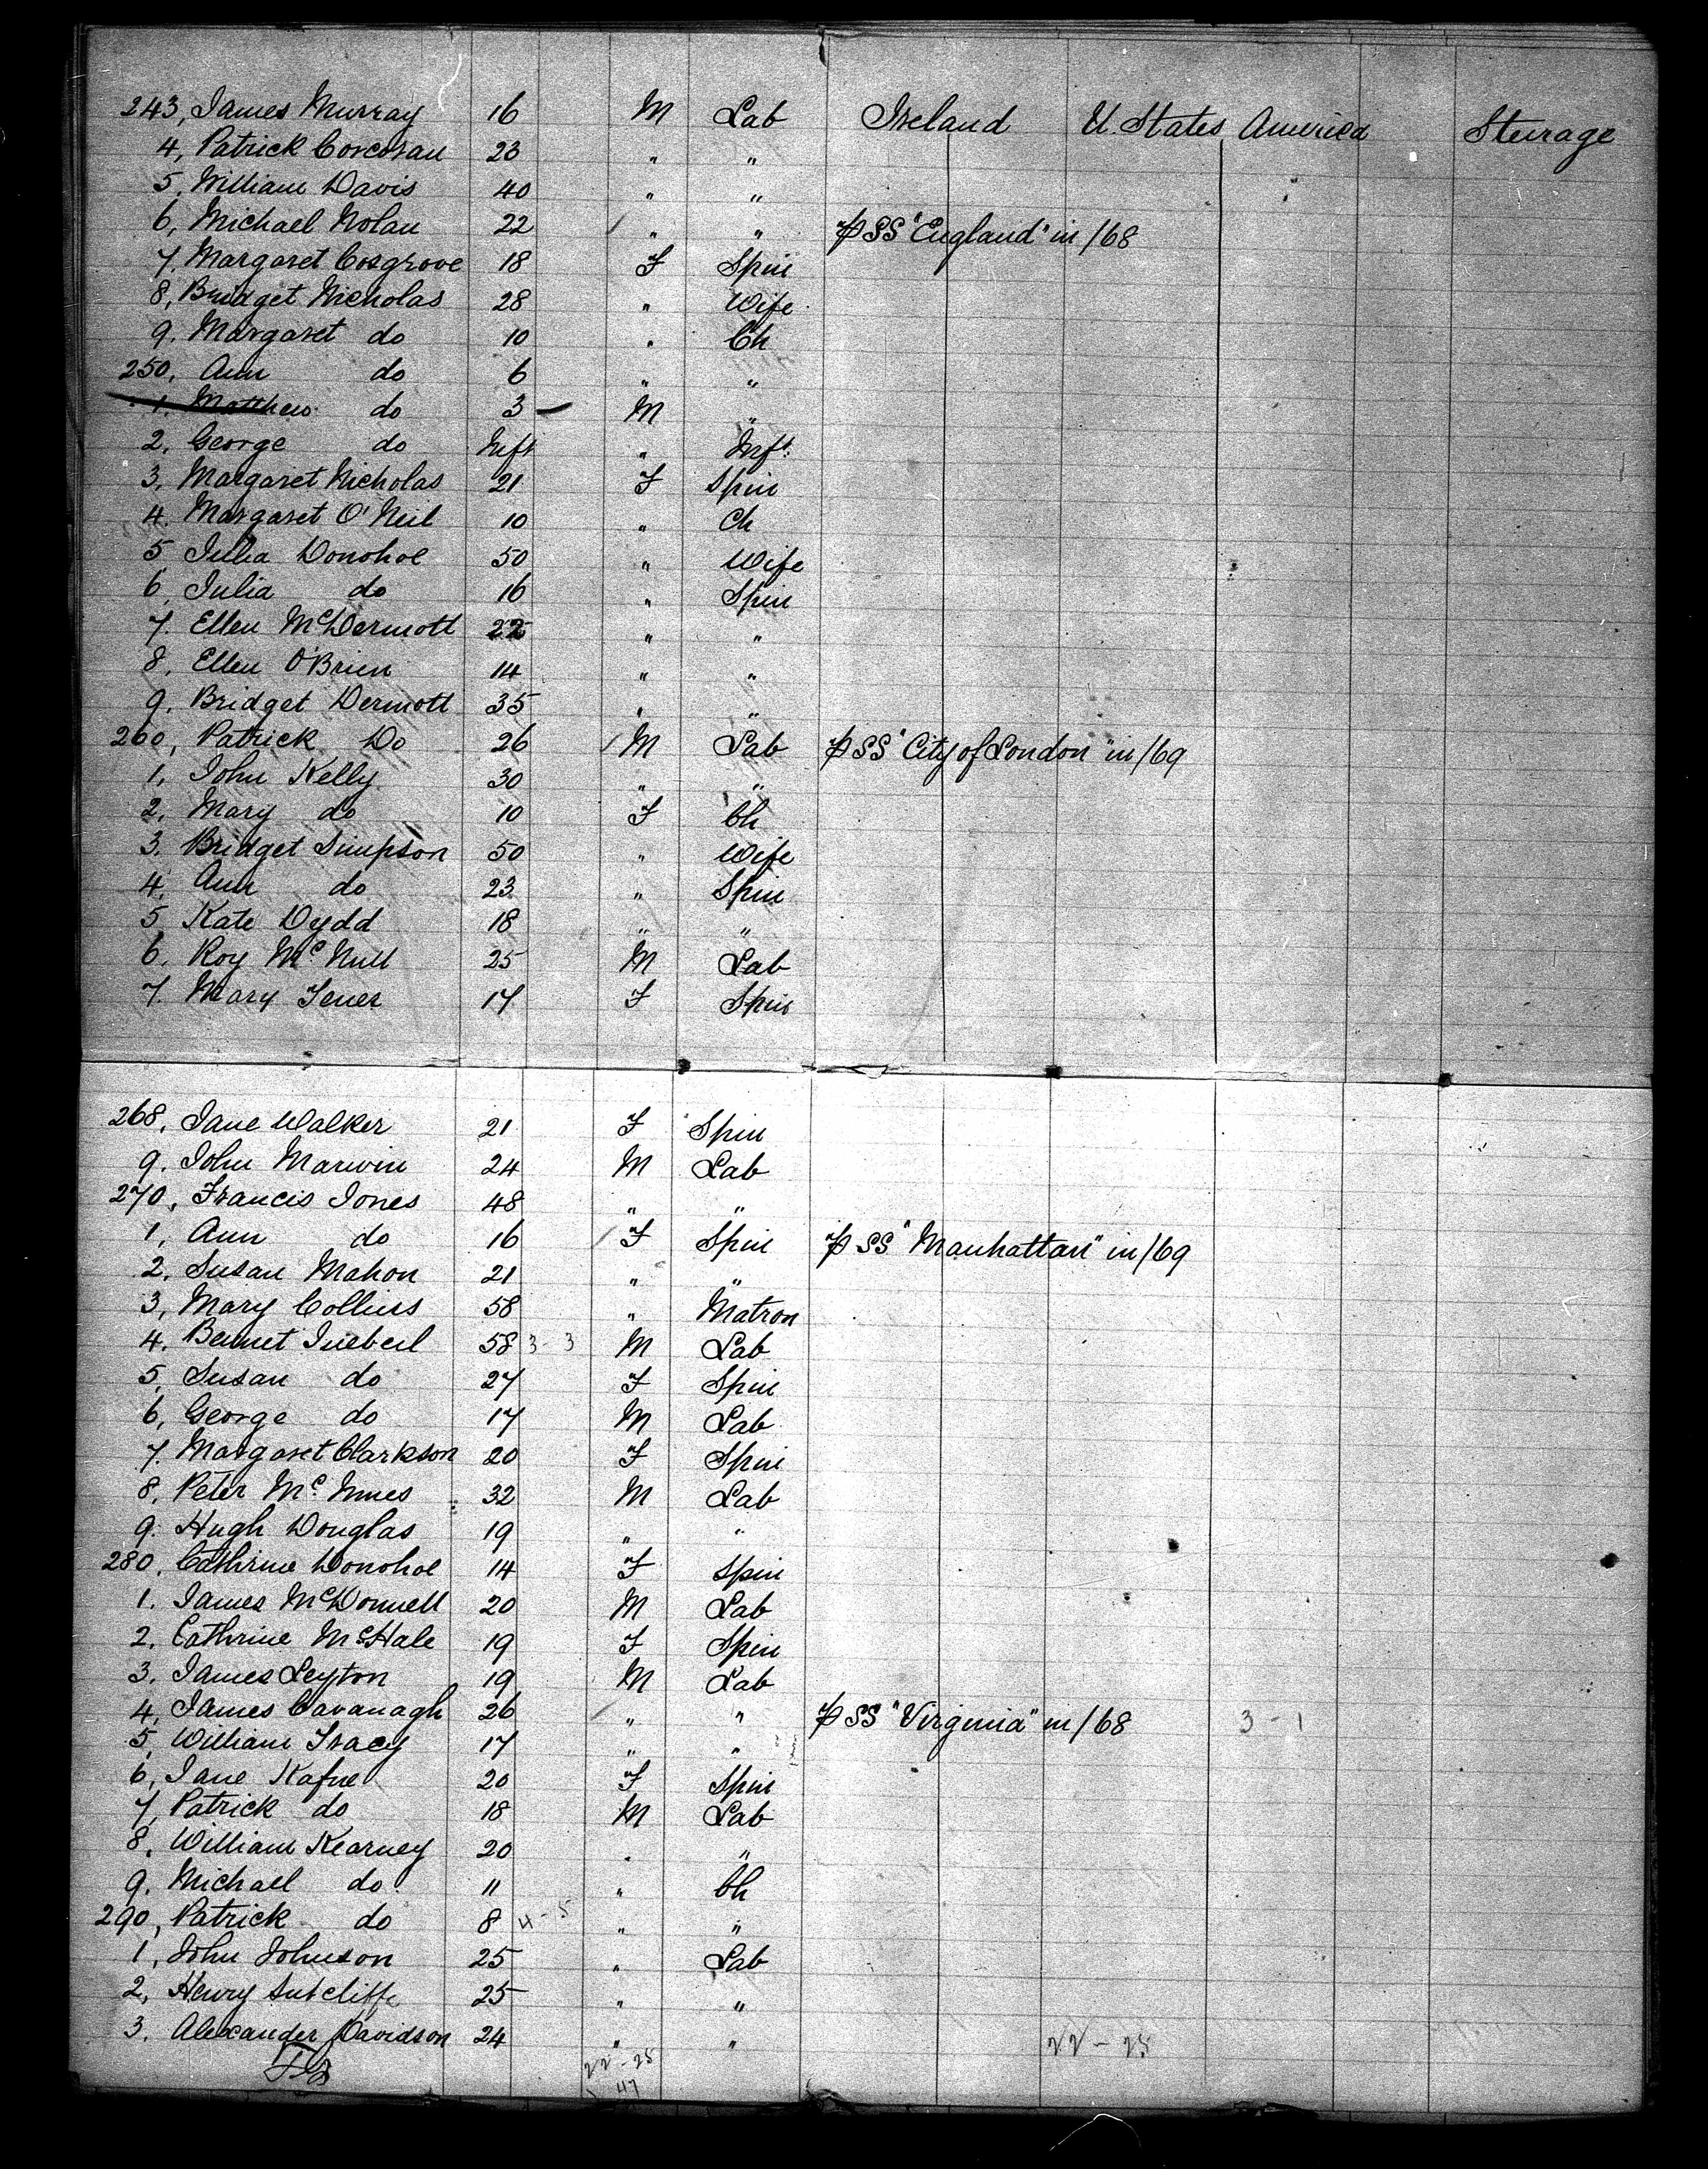 243, James Murray 16 M Lab Ireland U. States America Steurage
4, Patrick Corcoran 23 " "
5, William Davis 40 " "
6, Michael Nolan 22 / " " p SS "England" in /68
7. Margaret Cosgrove 18 F Spin
8, Bridget Nicholas 28 " Wife
9. Margaret do 10 " Ch
250, Ann do 6 " "
1. Matthew do 3 — M "
2, George do Inft " Inft.
3, Margaret Nicholas 21 F Spin
4. Margaret O'Neil 10 " Ch
5 Julia Donohoe 50 " Wife
6, Julia do 16 " Spin
7. Ellen McDermott 22 " "
8, Ellen O'Brien 14 " "
9. Bridget Dermott 35 " "
260, Patrick Do 26 / M Lab p SS "City of London" in /69
1, John Kelly 30 " "
2, Mary do 10 F Ch
3. Bridget Simpson 50 " Wife
4, Ann do 23 " Spin
5, Kate Dydd 18 " "
6, Roy McNull 25 M Lab
7. Mary Fener 17 F Spin
268, Jane Walker 21 F Spin
9. John Marwin 24 M Lab
270, Francis Jones 48 " "
1, Ann do 16 / F Spin p SS "Manhattan" in /69
2, Susan Mahon 21 " "
3, Mary Collins 58 " Matron
4. Bennet 58 3-3 M Lab
5, Susan do 27 F Spin
6, George do 17 M Lab
7. Margaret Clarkson 20 F Spin
8, Peter Mc Innes 32 M Lab
9. Hugh Douglas 19 " "
280, Cathrine Donohoe 14 F Spin
1. James McDonnell 20 M Lab
2, Cathrine McHale 19 F Spin
3. James Leyton 19 M Lab
4, James Cavanagh 26 / " " p SS "Virginia" in /68 3-1
5, William Tracy 17 " "
6, Jane Kafne 20 F Spin
7, Patrick do 18 M Lab
8, William Kearney 20 " "
9. Michael do 11 " Ch
290, Patrick do 8 4-5 " "
1, John Johnson 25 " Lab
2, Henry Sutcliffe 25 " "
3. Alexander Davidson 24 " " 22-25
22-25
47